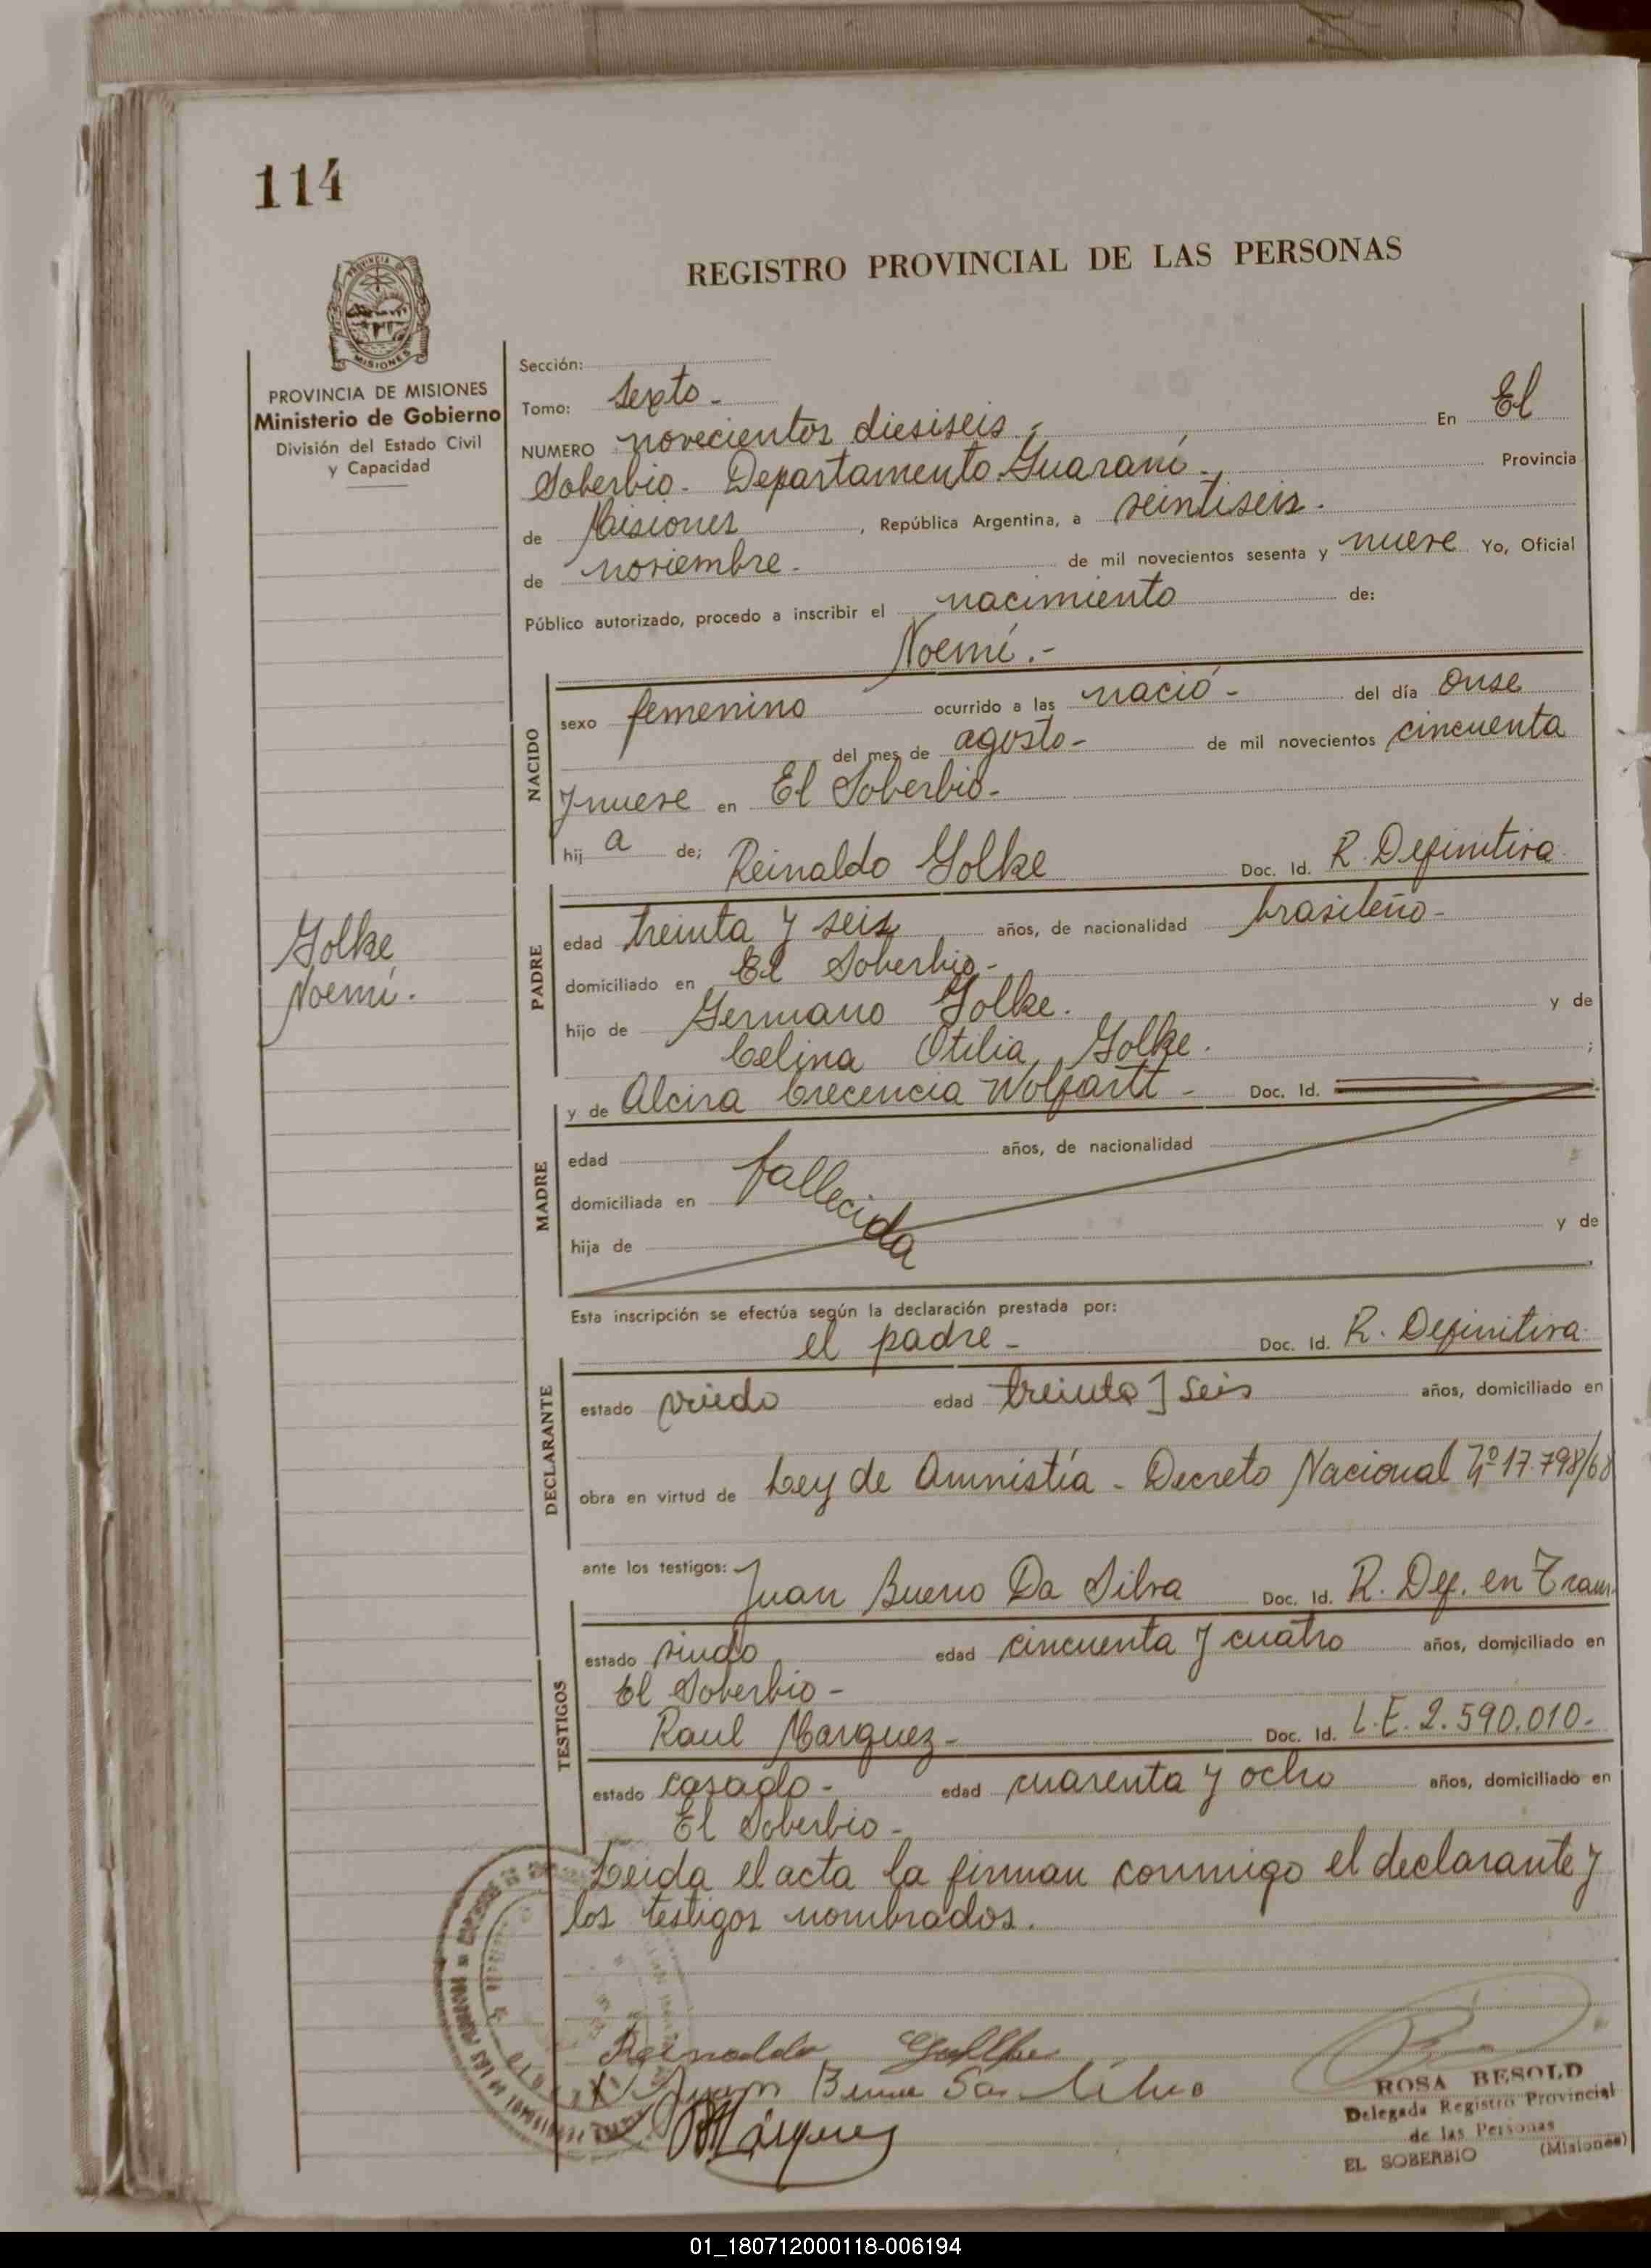 114
REGISTRO PROVINCIAL DE LAS PERSONAS
MISIONES
PROVINCIA DE MISIONES
Ministerio de Gobierno
División del Estado Civil
y Capacidad
Sección:
Tomo: Sexto -
NUMERO novecientos diesiseis - En El
Soberbio - Departamento Guaraní - Provincia
de Misiones, República Argentina, a veintiseis.
de noviembre - de mil novecientos sesenta y nueve Yo, Oficial
Público autorizado, procedo a inscribir el nacimiento de:
Noemí.-
NACIDO
sexo femenino ocurrido a las nació - del día onse
del mes de agosto - de mil novecientos cincuenta
y nueve en El Soberbio -
hij a de; Reinaldo Golke Doc. Id. R. Definitiva
Golke
Noemí.
PADRE
edad treinta y seis años, de nacionalidad brasileño -
domiciliado en El Soberbio -
hijo de Germano Golke. y de
Celina Otilia Golke. ;
y de Alcira Crecencia Wolfartt - Doc. Id.
MADRE
edad años, de nacionalidad
domiciliada en fallecida
hija de y de
Esta inscripción se efectúa según la declaración prestada por:
el padre - Doc. Id. R. Definitiva
DECLARANTE
estado viudo edad treinta y seis años, domiciliado en
obra en virtud de Ley de Amnistía - Decreto Nacional Nº 17.798/68
ante los testigos: Juan Bueno Da Silva Doc. Id. R. Def. en Tram.
TESTIGOS
estado viudo edad cincuenta y cuatro años, domiciliado en
El Soberbio -
Raul Marquez - Doc. Id. L.E. 2.590.010 -
estado casado - edad cuarenta y ocho años, domiciliado en
El Soberbio -
Leida el acta la firman conmigo el declarante y
los testigos nombrados.
Reinaldo Gollke
Juan Bueno Da Silva
Márquez
ROSA BESOLD
Delegada Registro Provincial
de las Personas
EL SOBERBIO (Misiones)
01_180712000118-006194